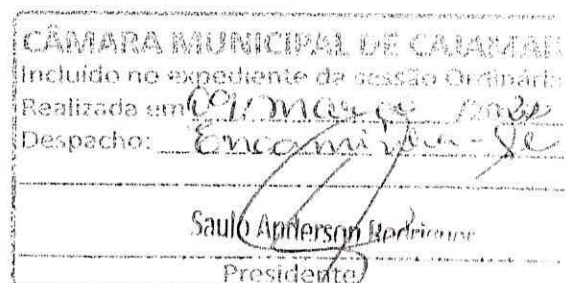 CÂMARA MUNICIPAL DE CAJAMAR
Incluído no expediente da sessão Ordinária
Realizada em 09/março
Despacho: Encaminha-se
Saulo Anderson Rodrigues
Presidente